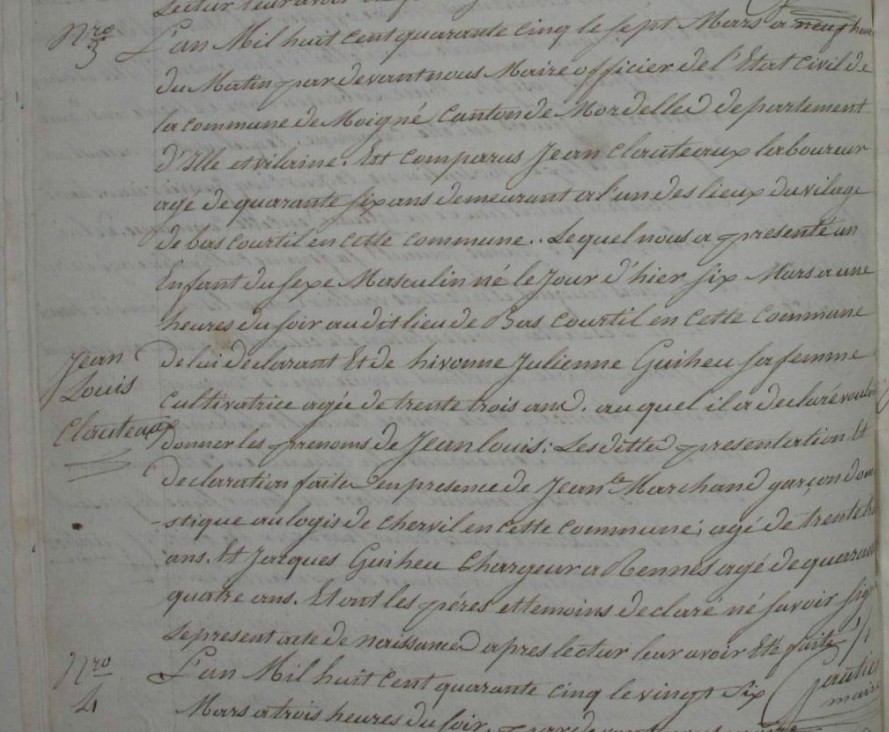 Lectur leur avoir
Nro 3
L'an Mil huit cent quarante cinq le sept Mars a neuf heur
du Matin par devant nous Maire officier de l'Etat Civil de
la commune de Moigné Canton de Mordelles departement
d'Ille et vilaine. Est comparus Jean Clauteaux laboureur
agé de quarante six ans demeurant a l'un des lieux du vilage
de bas courtil en cette commune.. Lequel nous a presenté un
Enfant du sexe Masculin né le Jour d'hier six Mars a une
heures du soir audit lieu de Bas Courtil en cette Commune
Jean
Louis
Clauteaux
de lui declarant Et de hivonne Julienne Guiheu sa femme
Cultivatrice agée de trente trois ans. au quel il a declaré vouloi
donner les prenoms de Jean louis: Les dittes presentation Et
declaration faites en presence de Jean Marchand garçon dom
-stique au logis de Chervil en cette commune; agé de trente
ans. Et Jacques Guiheu Chargeur a Rennes agé de quaran
quatre ans. Et ont les péres et temoins declare né savoir sig
Le present acte de naissance apres lectur leur avoir Eté faite
Gauties
maire
Nro 4
L'an Mil huit Cent quarante Cinq le vingt six
Mars a trois heures du soir.